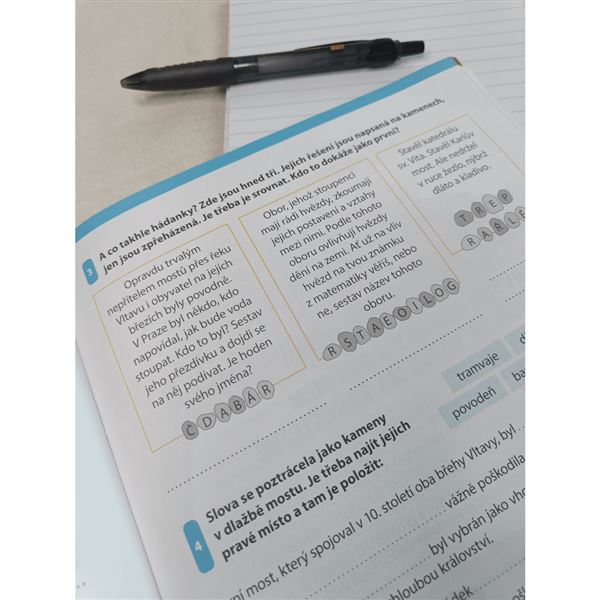 3
A co takhle hádanky? Zde jsou hned tři. Jejich řešení jsou napsaná na kamenech,
jen jsou zpřeházená. Je třeba je srovnat. Kdo to dokáže jako první?
Opravdu trvalým
nepřítelem mostů přes řeku
Vltavu i obyvatel na jejich
březích byly povodně.
V Praze byl někdo, kdo
napovídal, jak bude voda
stoupat. Kdo to byl? Sestav
jeho přezdívku a dojdi se
na něj podívat. Je hoden
svého jména?
ČDABÁR
Obor, jehož stoupenci
mají rádi hvězdy, zkoumají
jejich postavení a vztahy
mezi nimi. Podle tohoto
oboru ovlivňují hvězdy
dění na zemi. Ať už na vliv
hvězd na tvou známku
z matematiky věříš, nebo
ne, sestav název tohoto
oboru.
RSTAEOILOG
Stavěl katedrálu
sv. Víta. Stavěl Karlův
most. Ale nedržel
v ruce žezlo, nýbrž
dláto a kladivo.
TREP
RAŘLÉ
4
Slova se poztrácela jako kameny
v dlažbě mostu. Je třeba najít jejich
pravé místo a tam je položit:
tramvaje
povodeň
most, který spojoval v 10. století oba břehy Vltavy, byl
vážně poškodila
byl vybrán jako
hloubou království.